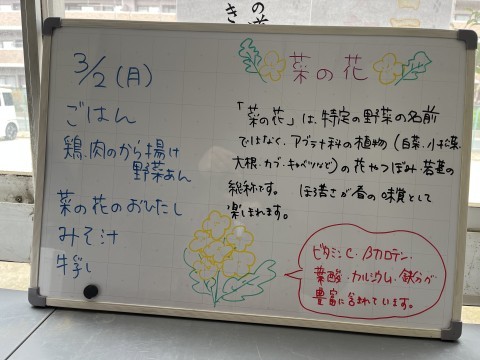 の
き
3/2(月)
ごはん
鶏肉のから揚げ
野菜あん
菜の花のおひたし
みそ汁
牛乳
菜の花
「菜の花」は、特定の野菜の名前
ではなく、アブラナ科の植物(白菜・小松菜・
大根・カブ・キャベツなど)の花やつぼみ・若葉の
総称です。 ほろ苦さが春の味覚として
楽しまれます。
ビタミンC・βカロテン・
葉酸・カルシウム・鉄分が
豊富に含まれています。